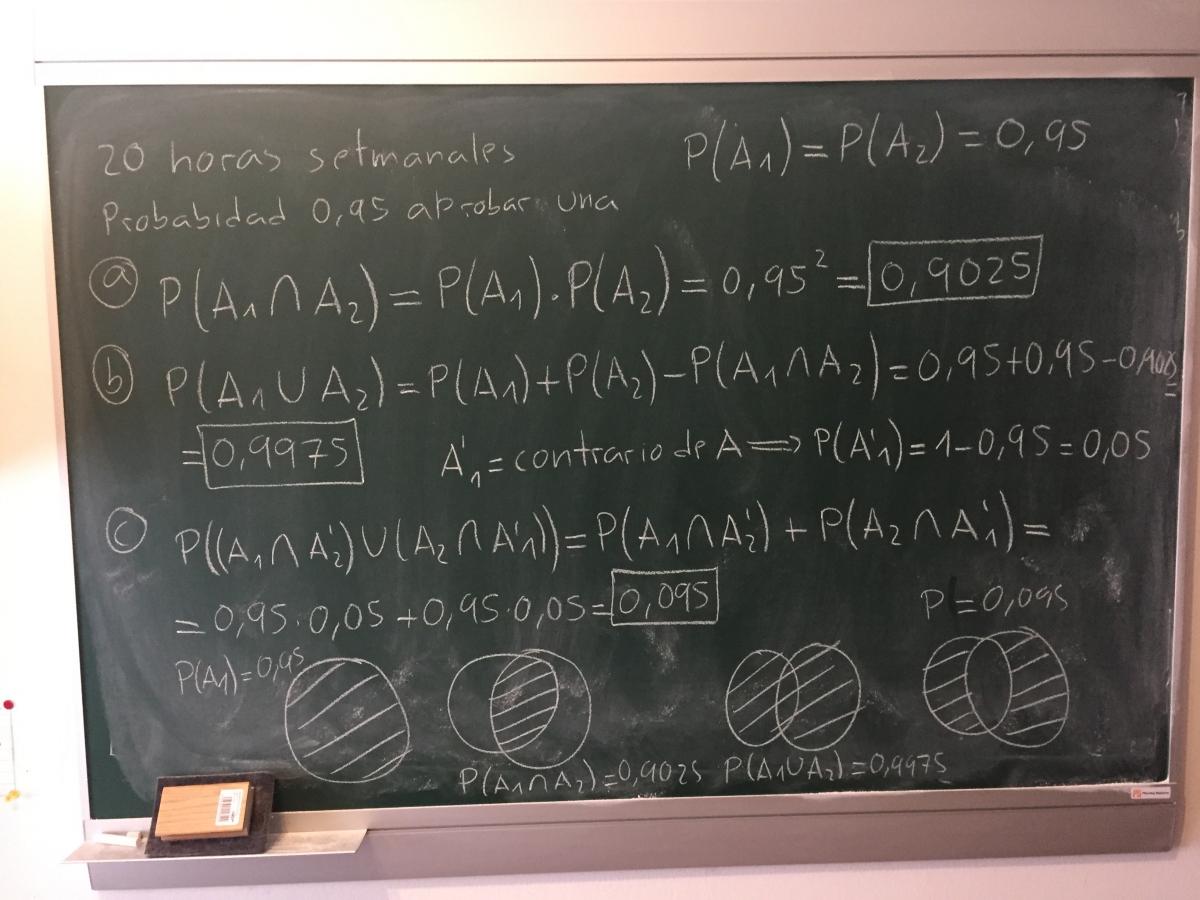 20 horas setmanales
P(A₁)=P(A₂)=0,95
Probabidad 0,95 aprobar una
a P(A₁∩A₂)=P(A₁).P(A₂)=0,95²=0,9025
b P(A₁∪A₂)=P(A₁)+P(A₂)-P(A₁∩A₂)=0,95+0,95-
=0,9975
A'₁=contrario de A⟹P(A'₁)=1-0,95=0,05
c P((A₁∩A'₂)∪(A₂∩A'₁))=P(A₁∩A'₂)+P(A₂∩A'₁)=
=0,95·0,05+0,95·0,05=0,095
P=0,095
P(A₁)=0,95
P(A₁∩A₂)=0,9025
P(A₁∪A₂)=0,9975